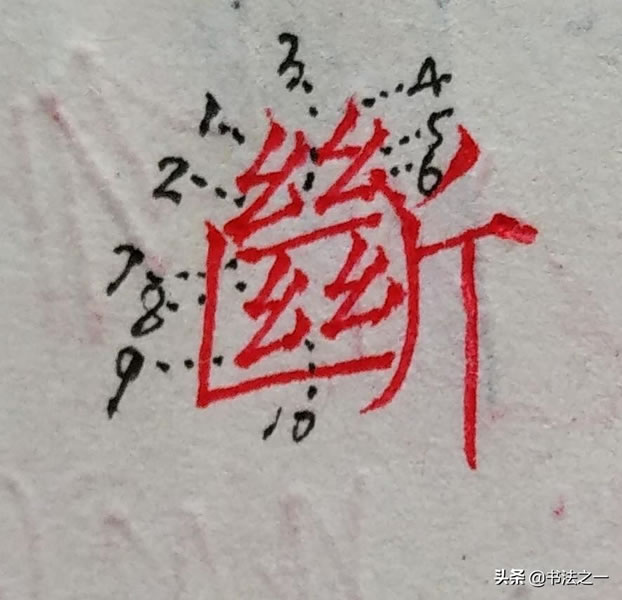 3
4
1
5
2
6
斷
7
8
9
10
头条 @书法之一